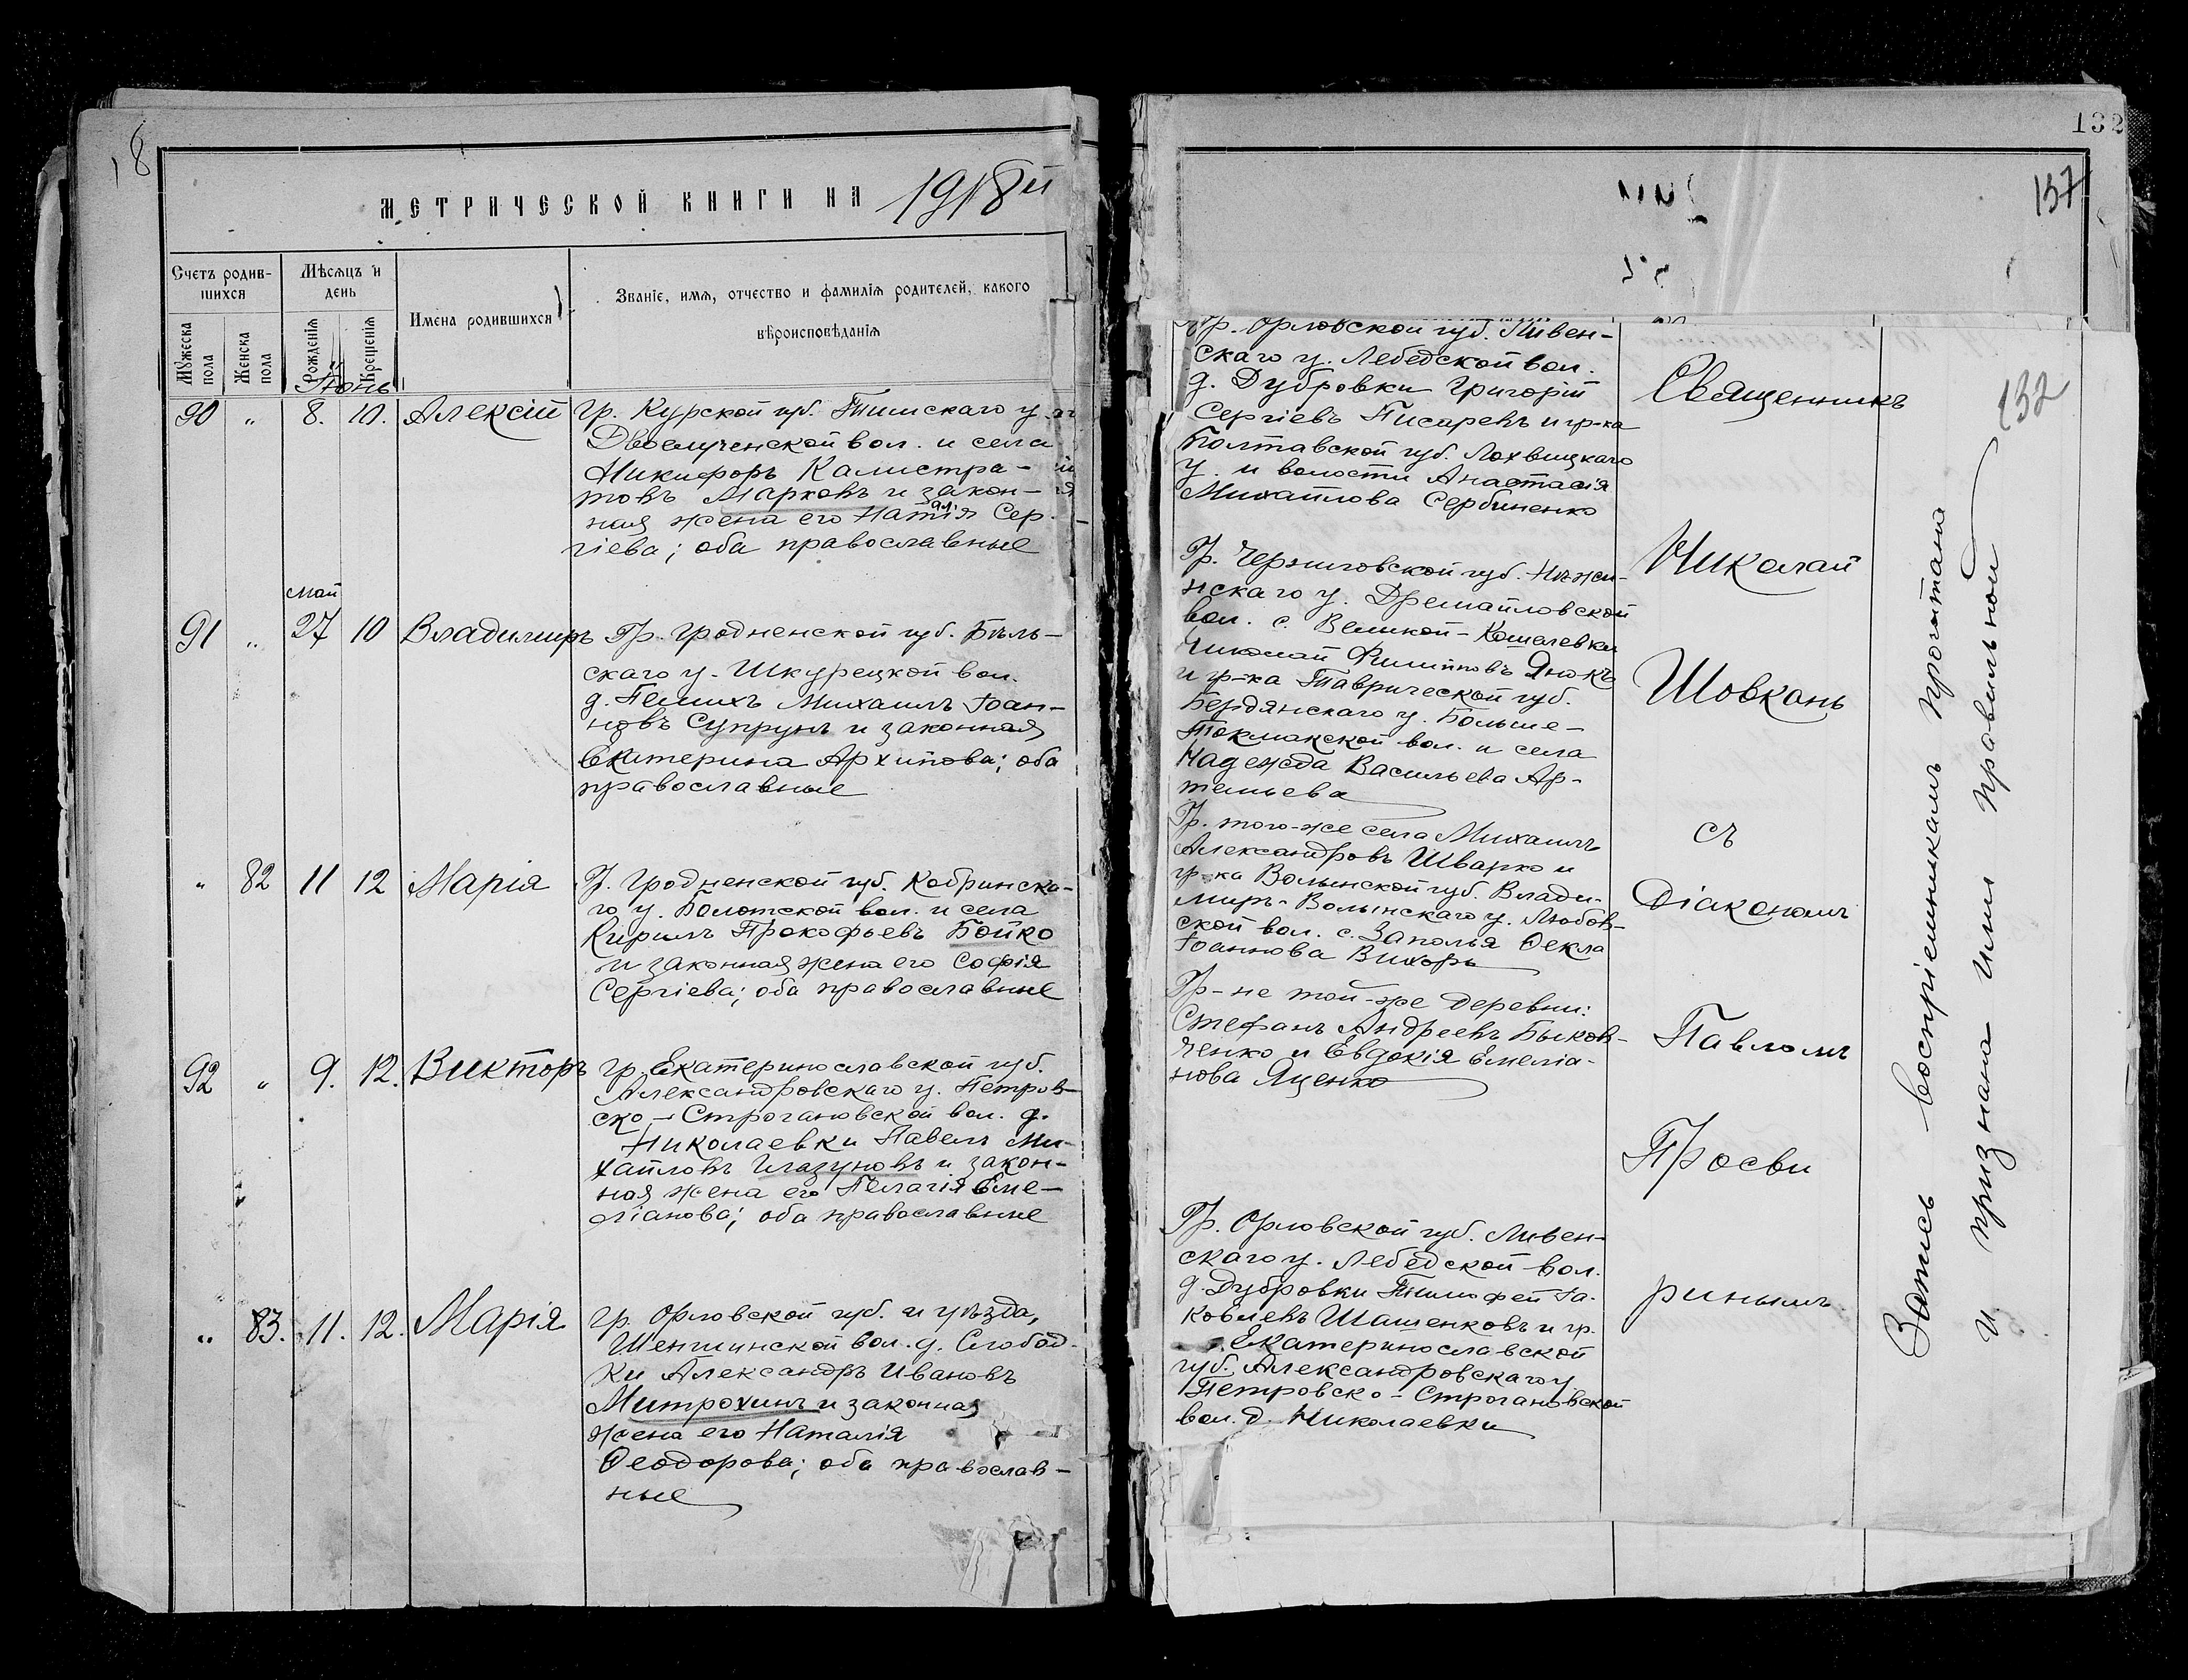 18
МЕТРИЧЕСКОЙ КНИГИ НА 1918й
Счетъ родив-
шихся
Мѣсяцъ и
день
Имена родившихся
Званіе, имя, отчество и фамилія родителей, какого
вѣроисповѣданія
Мужеска
пола
Женска
пола
Рожденія
Крещенія
Іюнь
90 „ 8. 10. Алексій гр. Курской губ. Тимскаго у.
Двоелученской вол. и села
Никифоръ Калистра-
товъ Марковъ и закон-
ная жена его Наталія Сер-
гіева; оба православные
Май
91 „ 27 10 Владимиръ Гр. Гродненской губ. Бѣль-
скаго у. Шкурецкой вол.
д. Михаилъ Іоан-
новъ Супрунъ и законная
Екатерина Архипова; оба
православные
„ 82 11 12 Марія Гр. Гродненской губ. Кобринска-
го у. Болотской вол. и села
Кирилъ Прокофьевъ Бойко
и законная жена его Софія
Сергіева; оба православные
92 „ 9. 12. Викторъ гр. Екатеринославской губ.
Александровскаго у. Петров-
ско-Строгановской вол. д.
Николаевки Павелъ Ми-
хайловъ Глазуновъ и закон-
ная жена его Пелагія Еме-
ліанова; оба православные
„ 83. 11. 12. Марія гр. Орловской губ. и уѣзда,
Шеншинской вол. д. Слобод-
ки Александръ Ивановъ
Митрохинъ и законная
жена его Наталія
Ѳеодорова; оба православ-
ные
132
137
132
Гр. Орловской губ. Ливен-
скаго у. Лебедской вол.
д. Дубровки Григорій
Сергіевъ Писаревъ и гр-ка
Полтавской губ. Лохвицкаго
у. и волости Анастасія
Михайлова Сербиненко
Гр. Черниговской губ. Нѣжи-
нскаго у. Дремайловской
вол. с. Великой-Кошелевки
Николай Филиповъ
и гр-ка Таврической губ.
Бердянскаго у. Больше-
Токмакской вол. и села
Надежда Васильева Ар-
темьева
Гр. того-же села Михаилъ
Александровъ Шварко и
гр-ка Волынской губ. Влади-
миръ-Волынскаго у. Любов-
ской вол. с. Заполья Ѳекла
Іоаннова Вихорь
Гр-не той-же деревни:
Стефанъ Андреевъ Быков-
ченко и Евдокія Емеліа-
нова Яценко
Гр. Орловской губ. Ливен-
скаго у. Лебедской вол.
д. Дубровки Тимофей Іа-
ковлевъ Шашенковъ и гр.
Екатеринославской
губ. Александровскаго у
Петровско-Строгановской
вол. д. Николаевки
Священникъ
Николай
Шовкань
съ
Діакономъ
Павломъ
Просви
ринымъ.
Запись воспріемникамъ прочитана
и признана ими правильной